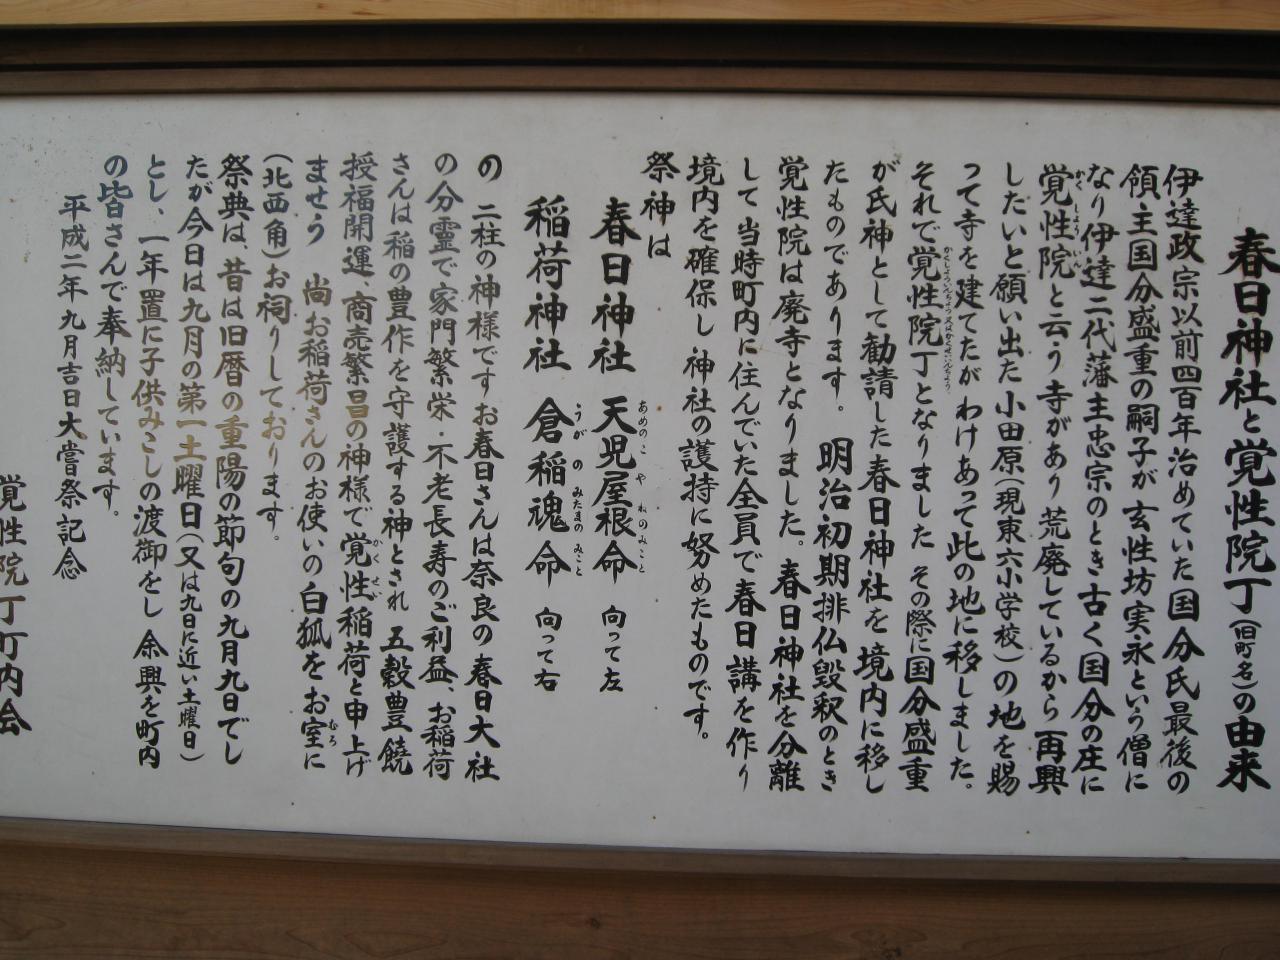 春日神社と覚性院丁(旧町名)の由来
伊達政宗以前四百年治めていた国分氏最後の
領主国分盛重の嗣子が玄性坊実永という僧に
なり伊達二代藩主忠宗のとき古く国分の庄に
覚性院と云う寺があり荒廃しているから再興
かくしょういん
したいと願い出た小田原(現東六小学校)の地を賜
って寺を建てたがわけあって此の地に移しました。
それで覚性院丁となりました その際に国分盛重
かくしょういんちょう又はかくせいいんちょう
が氏神として勧請した春日神社を境内に移し
たものであります。 明治初期排仏毀釈のとき
覚性院は廃寺となりました。春日神社を分離
して 当時町内に住んでいた全員で春日講を作り
境内を確保し 神社の護持に努めたものです。
祭神は
春日神社 天児屋根命 向って左
あめのこやねのみこと
稲荷神社 倉稲魂命 向って右
うがのみたまのみこと
の 二柱の神様ですお春日さんは奈良の春日大社
の分霊で家門繁栄・不老長寿のご利益、お稲荷
さんは稲の豊作を守護する神とされ 五穀豊饒
授福開運、商売繁昌の神様で覚性稲荷と申上げ
かくせい
ませう 尚お稲荷さんのお使いの白狐をお室に
むろ
(北西角)お祠りしております。
祭典は、昔は旧暦の重陽の節句の九月九日でし
たが今日は九月の第一土曜日(又は九日に近い土曜日)
とし、一年置に子供みこしの渡御をし 余興を町内
の皆さんで奉納しています。
平成二年九月吉日大嘗祭記念
覚性院丁町内会